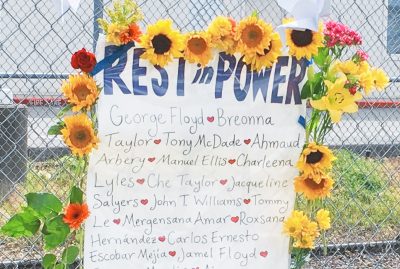 REST in POWER
George Floyd ♥ Breonna
Taylor ♥ Tony McDade ♥ Ahmaud
Arbery ♥ Manuel Ellis ♥ Charleena
Lyles ♥ Che Taylor ♥ Jacqueline
Salyers ♥ John T Williams ♥ Tommy
Le ♥ Mergensana Amar ♥ Roxsana
Hernández ♥ Carlos Ernesto
Escobar Mejía ♥ Jamel Floyd ♥